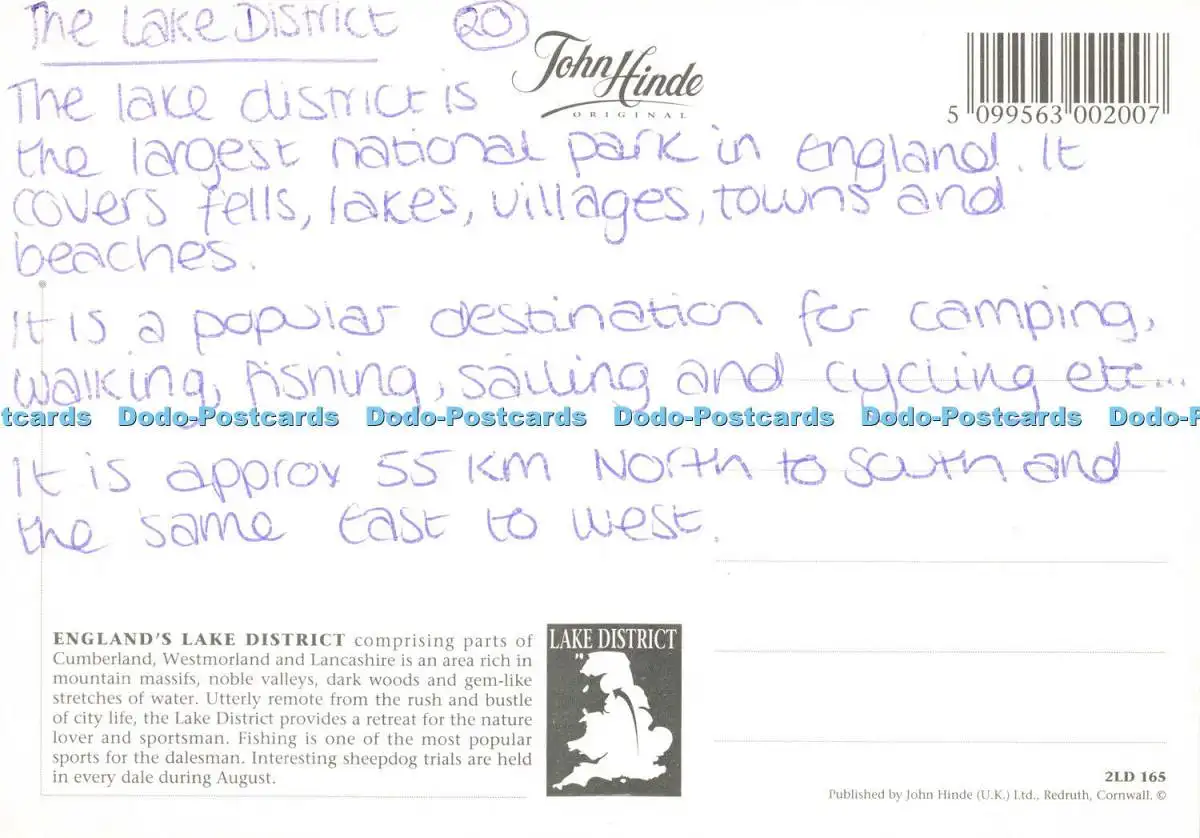 The Lake District 20
John Hinde
ORIGINAL
5 099563 002007
The lake district is
the largest national park in England. It
covers fells, lakes, villages, towns and
beaches.
It is a popular destination for camping,
walking, fishing, sailing and cycling etc...
tcards Dodo-Postcards Dodo-Postcards Dodo-Postcards Dodo-Postcards Dodo-P
It is approx 55 km North to South and
the same East to West.
ENGLAND'S LAKE DISTRICT comprising parts of
Cumberland, Westmorland and Lancashire is an area rich in
mountain massifs, noble valleys, dark woods and gem-like
stretches of water. Utterly remote from the rush and bustle
of city life, the Lake District provides a retreat for the nature
lover and sportsman. Fishing is one of the most popular
sports for the dalesman. Interesting sheepdog trials are held
in every dale during August.
LAKE DISTRICT
2LD 165
Published by John Hinde (U.K.) Ltd., Redruth, Cornwall. ©